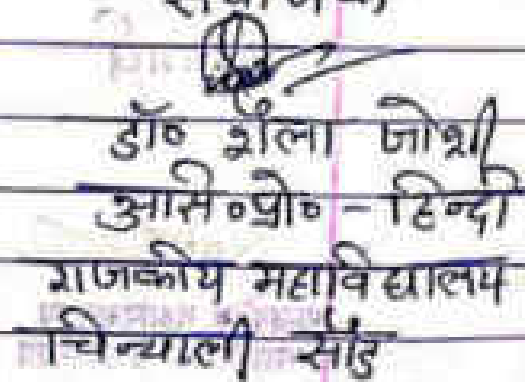 संयोजक
डॉ० शैला जोशी
असि०प्रो० - हिन्दी
राजकीय महाविद्यालय
चिन्यालीसौड़